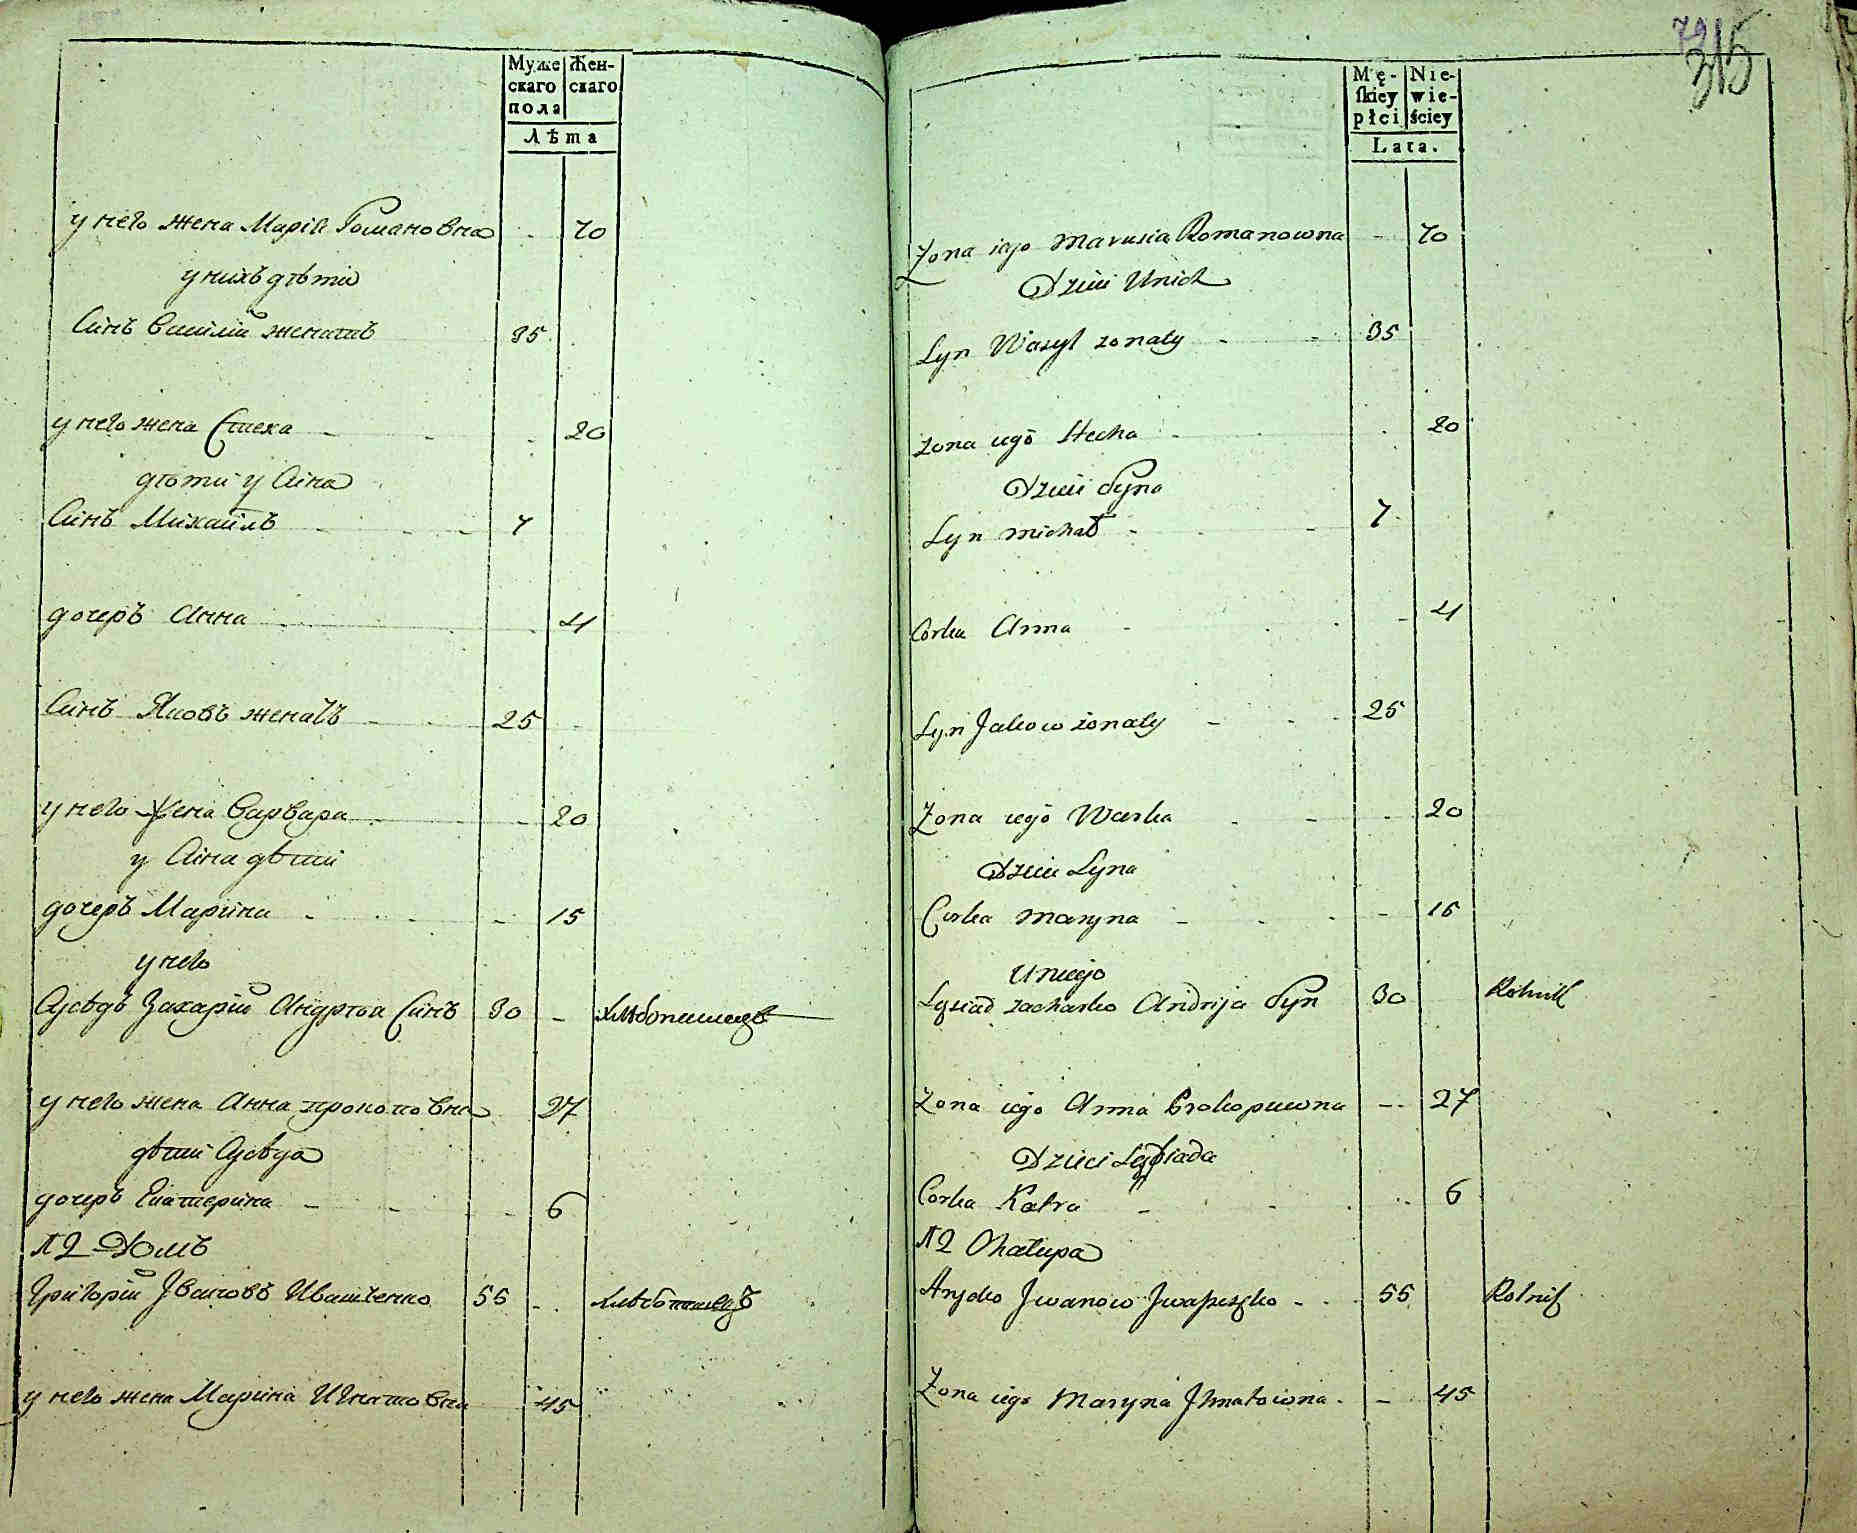 Муже Жен-
скаго скаго
пола
Лѣта
у него жена Марія Романовна - 70
у нихъ дѣти
Синъ Василій женатъ 35
у него жена Стеха - 20
дѣти у Сина
Синъ Михаилъ - 7
дочеръ Анна - 4
Синъ Яковъ женатъ - 25
у него Жена Варвара - 20
у Сина дѣти
дочеръ Марина - 15
у него
Сусѣдъ Захарій Андрѣя Синъ 30 - хлѣбопашецъ
у него жена Анна Прокоповна 27
дѣти Сусѣда
дочеръ Екатерина - 6
№ 2 Домъ
Григорій Івановъ Ивашченко 55 - хлѣбопашецъ
у него жена Марина Игнатовна 45
315
Mę- Nie-
ſkiey wie-
płci ściey
Lata.
Zona iego Marusia Romanowna - 70
Dzieci Unich
Syn Wasyl zonaty - 35
zona iego Stecha - 20
Dzieci Syna
Syn Michał - 7
Corka Anna - 4
Syn Jakow żonaty - 25
Zona iego Warka - 20
Dzieci Syna
Corka Maryna - 15
Uniego
Sąsiad zacharko Andrija Syn 30 Rolnik
Zona iego Anna Prokopowna - 27
Dzieci Sąsiada
Corka Katra - 6
№ 2 Chałupa
Hryćko Jwanow Jwaszczko - 55 Rolnik
Zona iego Maryna Jhnatowna - 45